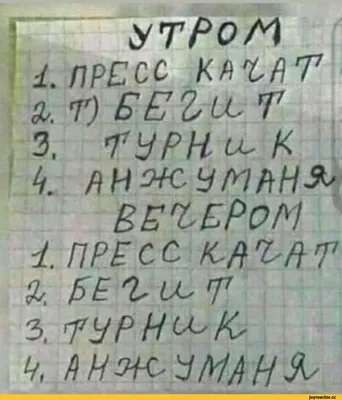 УТРОМ
1. ПРЕСС КАЧАТ
2. Т) БЕГИТ
3. ТУРНИК
4. АНЖУМАНЯ
ВЕЧЕРОМ
1. ПРЕСС КАЧАТ
2. БЕГИТ
3. ТУРНИК
4. АНЖУМАНЯ
joyreactor.cc